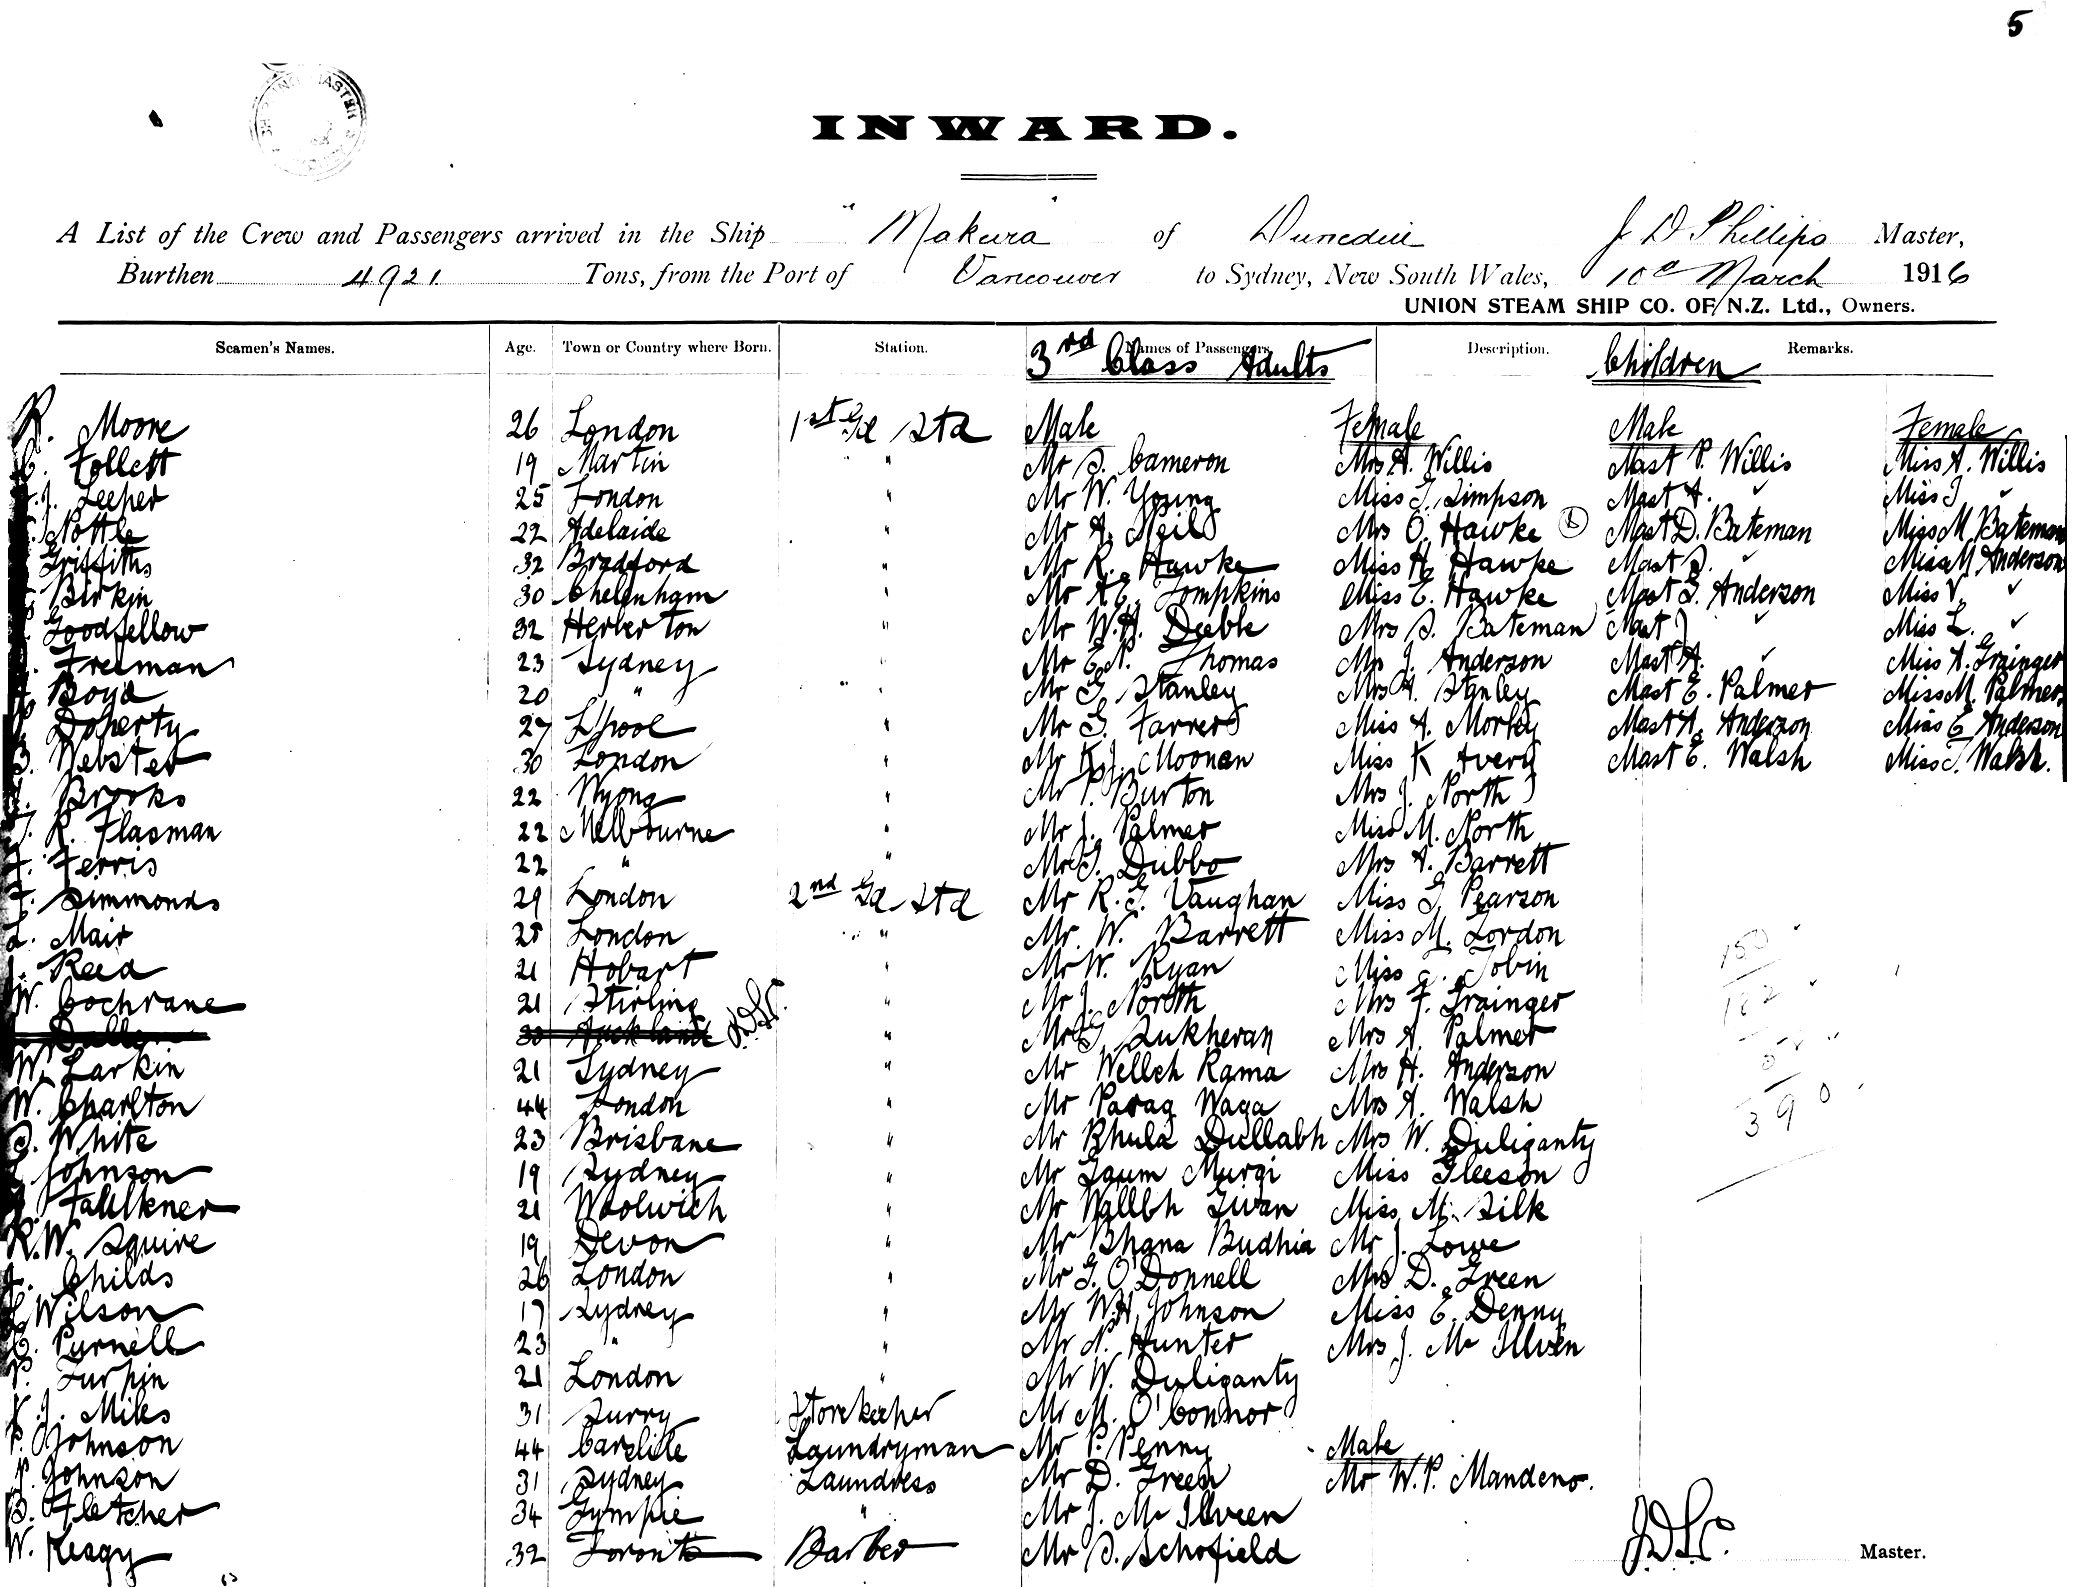 5
INWARD.
A List of the Crew and Passengers arrived in the Ship "Makura" of Dunedin J D Phillips Master,
Burthen 4921. Tons, from the Port of Vancouver to Sydney, New South Wales, 10 March 1916
UNION STEAM SHIP CO. OF N.Z. Ltd., Owners.
Seamen's Names. Age. Town or Country where Born. Station. Names of Passengers. Description. Remarks.
3rd Class Adults Children
R. Moore 26 London 1st Gd Std Male Female Male Female
Follett 19 Martin " Mr D. Cameron Mrs A. Willis Mast P. Willis Miss A. Willis
J. Leeper 25 London " Mr W. Young Miss G. Simpson Mast A. ✓ Miss J ✓
Nottle 22 Adelaide " Mr A. Neil Mrs O. Hawke Mast D. Bateman Miss M. Bateman
Griffiths 32 Bradford " Mr R. Hawke Miss H. Hawke Mast D. ✓ Miss M. Anderson
Birkin 30 Chelenham " Mr A.E. Tompkins Miss E. Hawke Mast G. Anderson Miss V. ✓
Goodfellow 32 Herberton " Mr W.H. Deeble Mrs D. Bateman Mast J ✓ Miss L. ✓
Freeman 23 Sydney Mr E.N. Thomas J. Anderson Mast A. ✓ Miss A. Grainger
Boyd 20 " " Mr G. Stanley Mrs A. Stanley Mast E. Palmer Miss M. Palmer
Doherty 27 L'pool " Mr G. Farrer Miss A. Morley Mast A. Anderson Miss E Anderson
Webster 30 London " Mr K.J. Moonan Miss K Avery Mast E. Walsh Miss J. Walsh.
Brooks 22 Wyong " Mr P. Burton Mrs J. North
R. Flasman 22 Melbourne " Mr J. Palmer Miss M. North
F. Ferris 22 " " Mr G. Dubbo Mrs A. Barrett
F. Simmonds 29 London 2nd Gd Std Mr R.G. Vaughan Miss G. Pearson
L. Mair 28 London " Mr. W. Barrett Miss M. Gordon
Reed 21 Hobart " Mr W. Ryan Miss Tobin
W. Cochrane 21 Stirling " Mr J. North Mrs F. Grainger
30 Auckland " Mr G. Sukheran Mrs A. Palmer
W. Larkin 21 Sydney " Mr Wellch Rama Mrs H. Anderson
W. Charlton 44 London " Mr Parag Waga Mrs A. Walsh
White 23 Brisbane " Mr Bhula Dullabh Mrs W. Duliganty
Johnson 19 Sydney " Mr Gaum Murgi Miss Gleeson
Faulkner 21 Woolwich " Mr Wallbh Giwan Miss M. Silk
R.W. Squire 19 Devon " Mr Bhana Budhia Mr J. Lowe
Childs 26 London " Mr G. O'Donnell Mrs D. Green
Wilson 17 Sydney " Mr W.H. Johnson Miss E. Denny
Purnell 23 " " Mr N. Hunter Mrs J. Mc Ilveen
P. Turpin 21 London " Mr W. Duliganty
J. Miles 31 Surry Storekeeper Mr M. O'Connor
P. Johnson 44 Carslile Laundryman Mr P. Penny Male
Johnson 31 Sydney Laundress Mr D. Green Mr W.P. Mandeno.
B. Fletcher 34 Gympie " Mr J. Mc Ilveen
W. Keagy 32 Toronto Barber Mr D. Schofield
Master.